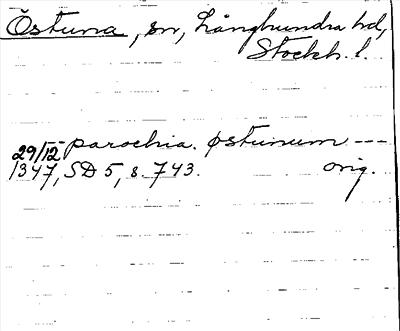 Östuna, sn, Långhundra hd,
Stockh. l.
parochia. østunum ---
29/12
1347, SD 5, s. 743. orig.